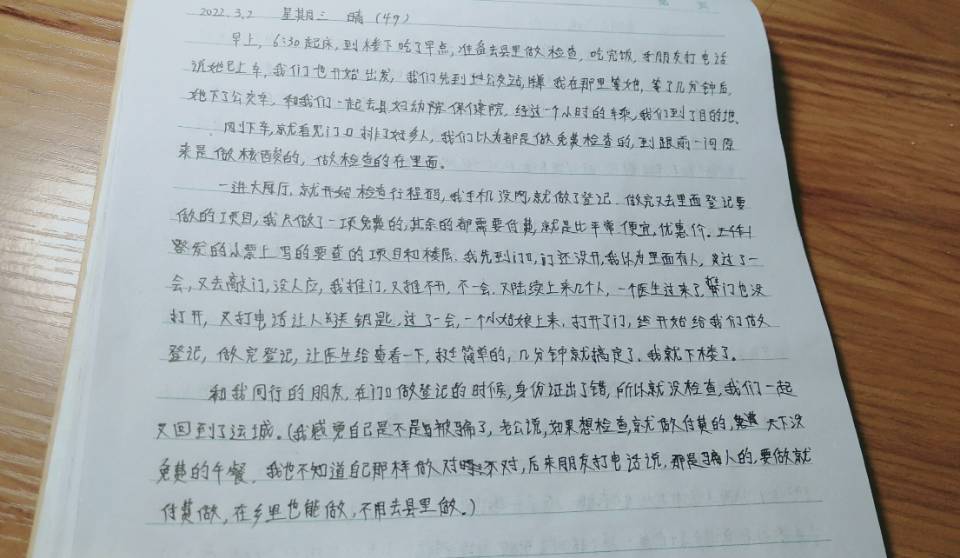 2022.3.2 星期三 晴 (49)
早上,6:30起床,到楼下吃了早点,准备去县里做检查,吃完饭,手朋友打电话
说她已上车,我们也开始出发,我们先到公交站,我在那里等她,等了几分钟后,
她下了公交车,和我们一起去县妇幼院保健院,经过一个小时的车乘,我们到了目的地,
刚下车,就看见门口排了好多人,我们以为都是做免费检查的,到跟前一问原
来是做核酸的,做检查的在里面。
一进大厅,就开始检查行程码,我手机没网,就做了登记.做完又去里面登记要
做的项目,我只做了一项免费的,其余的都需要付费,就是比平常便宜,优惠价.
发的小票上写的要查的项目和楼层.我先到门口,门还没开,我以为里面有人,又过了一
会,又去敲门,没人应,我推门,又推不开,不一会,又陆续上来几个人,一个医生过来了,门也没
打开,又打电话让人送钥匙,过了一会,一个小姑娘上来,打开了门,终开始给我们做
登记,做完登记,让医生给查看一下,挺简单的,几分钟就搞定了.我就下楼了。
和我同行的朋友,在门口做登记的时候,身份证出了错,所以就没检查,我们一起
又回到了运城。(我感觉自己是不是被骗了,老公说,如果想检查,就做付费的,天下没
免费的午餐,我也不知道自己那样做对不对,后来朋友打电话说,那是骗人的,要做就
付费做,在乡里也能做,不用去县里做。)